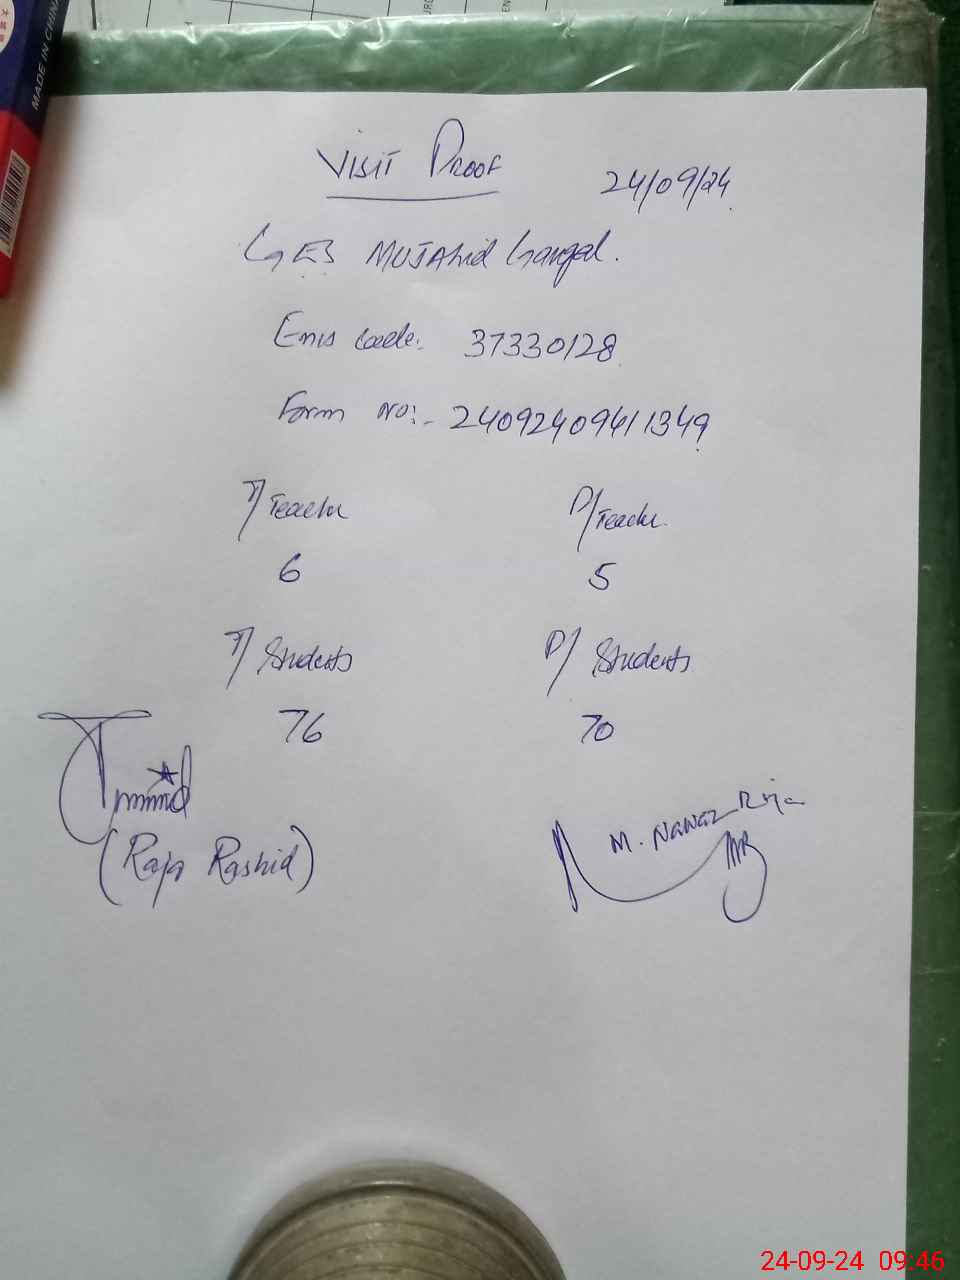 MADE IN CHINA
VISIT PROOF 24/09/24
GES MUJAHid Gangal.
Emis Code:- 37330128
Form no:- 24092409411349
T/Teacher P/Teacher
6 5
T/Students P/Students
76 70
(Raja Rashid)
M. Nawaz
24-09-24 09:46